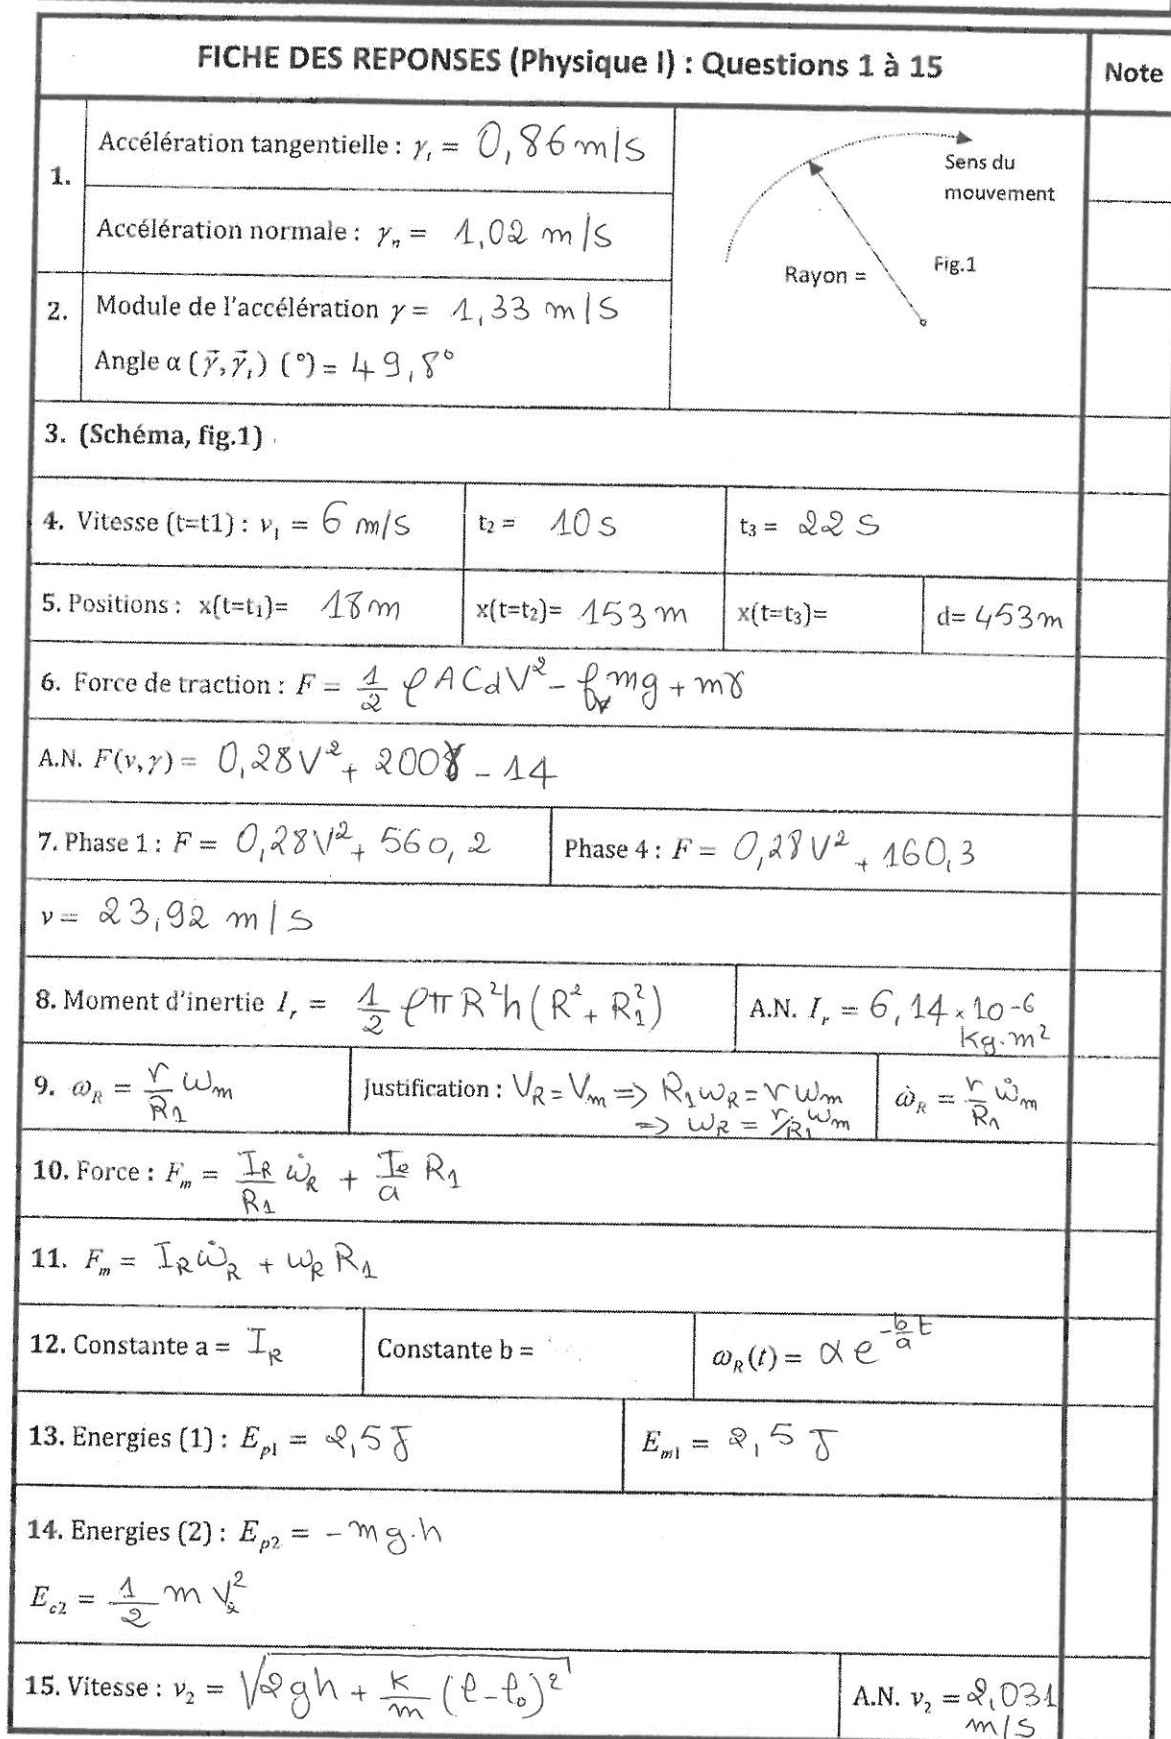 FICHE DES REPONSES (Physique I) : Questions 1 à 15
Note
1.
Accélération tangentielle : γₜ = 0,86 m/s
Accélération normale : γₙ = 1,02 m/s
Sens du
mouvement
Rayon =
Fig.1
2.
Module de l'accélération γ = 1,33 m/s
Angle α (γ⃗, γ⃗ₜ) (°) = 49,8°
3. (Schéma, fig.1)
4. Vitesse (t=t1) : v₁ = 6 m/s
t₂ = 10 s
t₃ = 22 s
5. Positions : x(t=t₁)= 18 m
x(t=t₂)= 153 m
x(t=t₃)=
d= 453 m
6. Force de traction : F = 1/2 ρ A Cd V² - fᵥ mg + mγ
A.N. F(v,γ) = 0,28V² + 200γ - 14
7. Phase 1 : F = 0,28V² + 560,2
Phase 4 : F = 0,28V² + 160,3
v = 23,92 m/s
8. Moment d'inertie Iᵣ = 1/2 ρπR²h(R² + R₁²)
A.N. Iᵣ = 6,14 × 10-6
kg.m²
9. ω_R = r/R₁ ω_m
Justification : V_R = V_m => R₁ω_R = r ω_m
=> ω_R = r/R₁ ω_m
ω̇_R = r/R₁ ω̇_m
10. Force : F_m = I_R/R₁ ω̇_R + I_e/a R₁
11. F_m = I_R ω̇_R + ω_R R₁
12. Constante a = I_R
Constante b =
ω_R(t) = α e^(-b/a t)
13. Energies (1) : E_p1 = 2,5 J
E_m1 = 2,5 J
14. Energies (2) : E_p2 = - mg.h
E_c2 = 1/2 m V₂²
15. Vitesse : v₂ = √(2gh + k/m (l-l₀)²)
A.N. v₂ = 2,031
m/s